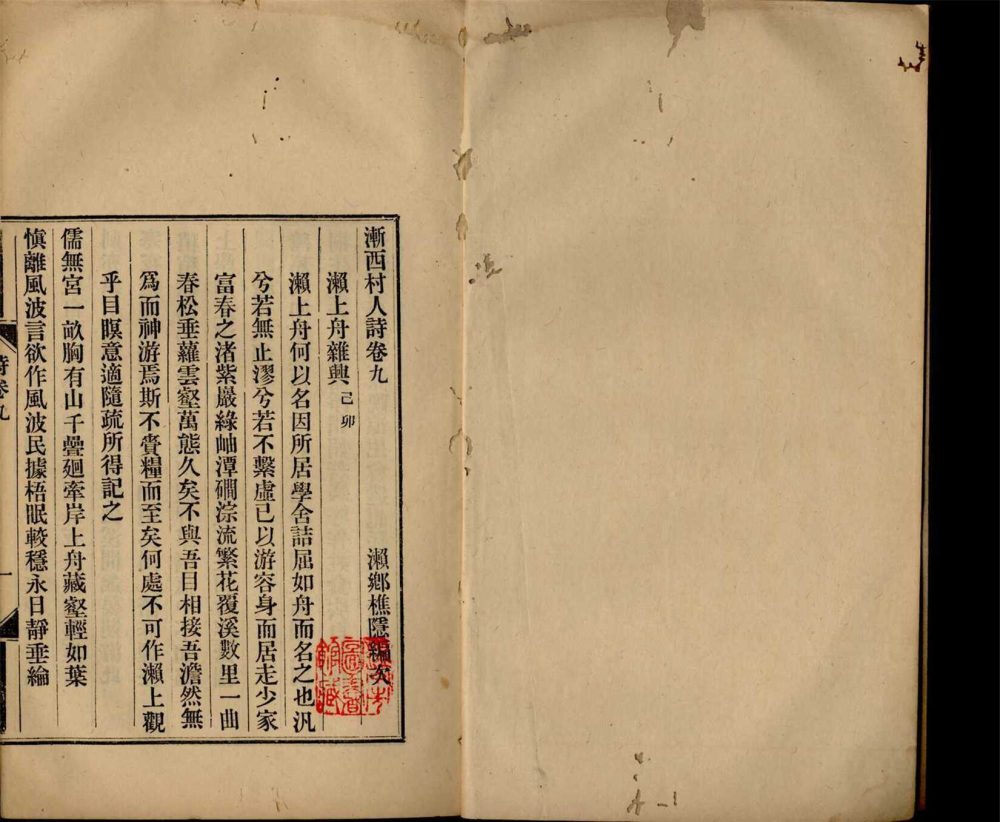 漸西村人詩卷九　瀨鄉樵隱編矣
瀨上舟雜興 己卯
瀨上舟何以名因所居學舍詰屈如舟而名之也汎
兮若無止漻兮若不繫虛已以游容身而居走少家
富春之渚紫巖綠岫潭磵淙流繁花覆溪數里一曲
春松垂蘿雲壑萬態久矣不與吾目相接吾澹然無
爲而神游焉斯不賫糧而至矣何處不可作瀨上觀
乎目瞑意適隨疏所得記之
儒無宮一畝胸有山千疊廻牽岸上舟藏壑輕如葉
愼離風波言欲作風波民據梧眠較穩永日靜垂綸
詩卷九
一